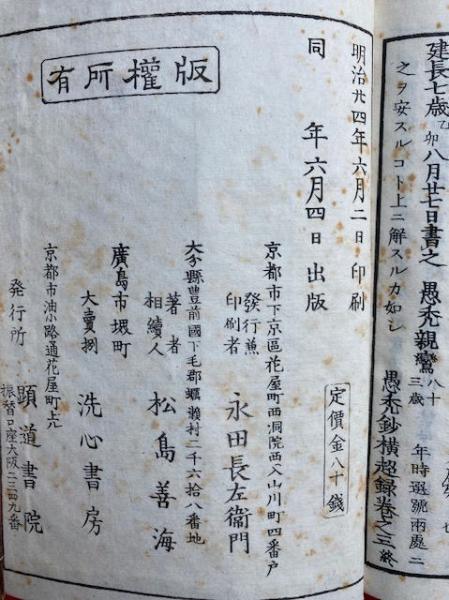 建長七歳乙卯八月廿七日書之 愚禿親鸞八十三歳
之ヲ安スルコト上ニ解スルカ如シ 年時選號兩處ニ
愚禿鈔横超録卷之三終
明治廿四年六月二日印刷
同 年六月四日出版
定價金八十錢
京都市下京區花屋町西洞院西入山川町四番戸
發行兼印刷者 永田長左衞門
大分縣豊前國下毛郡蠣瀬村二千六拾八番地
著者相續人 松島善海
廣島市堺町
大賣捌 洗心書房
京都市油小路通花屋町上ル
發行所 顕道書院
振替口座大阪二三四九番
版權所有